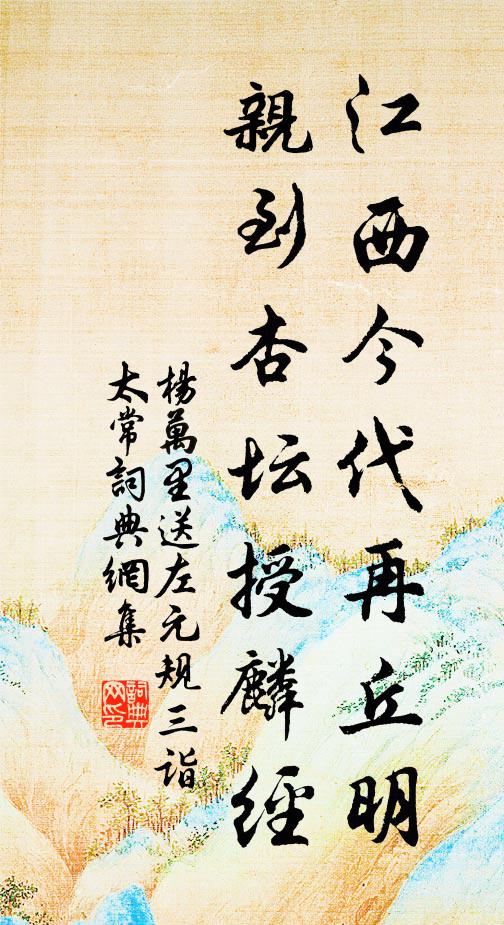 江西今代再丘明
親到杏坛授麟經
楊萬里送左元規三詣
太常詞典網集
詞典網印